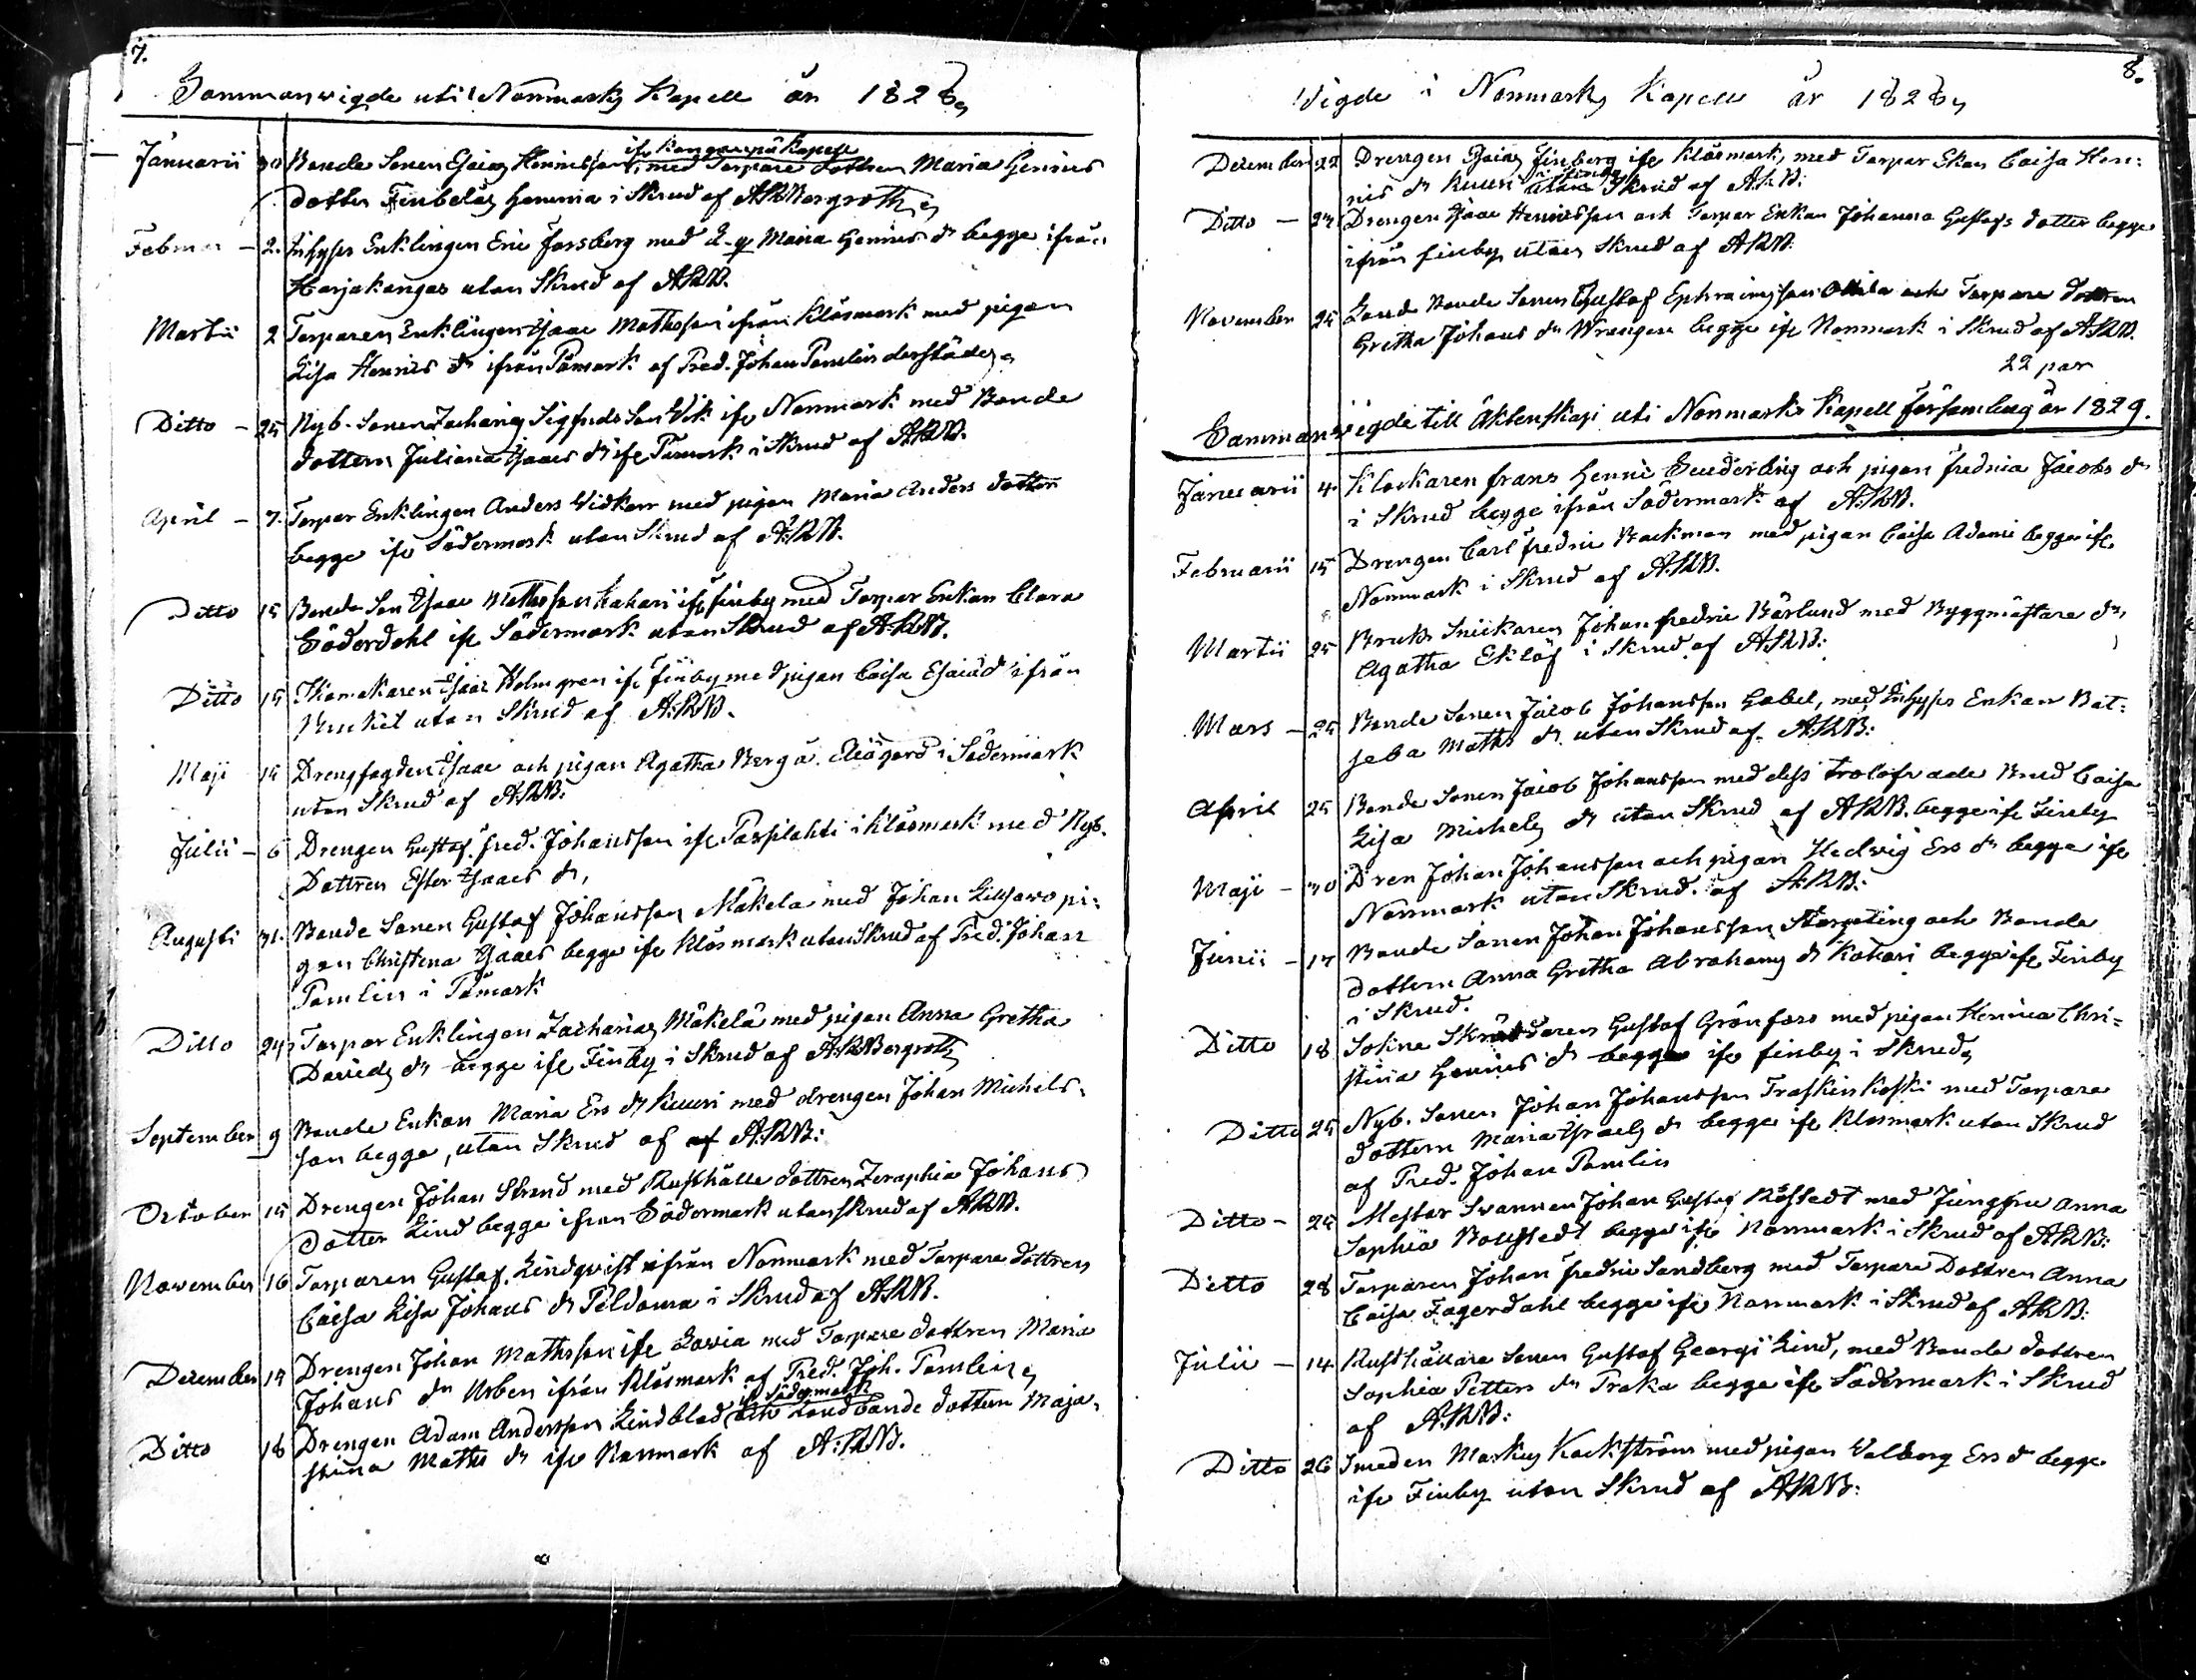 7.
Sammanvigde uti Normarks Kapell år 1828,
ifr Kanganpä Kapell
Januarii 30 Bonde Sonen Esaias Henricsson, med Torpare dottren Maria Henrics
dotter Finbelas hemma i Skrud af ARBergroth,
Februar – 2. Inhyses Enklingen Eric Forsberg med Maria Henrics dr begge ifrån
Harjakangas utan Skrud af ARB.
Martii 2 Torparen Enklingen Isaac Mathsson ifrån Klåsmark med pigan
Lisa Henrics dr ifrån Påmark af Pred. Johan Pomlin derstädes,
Ditto – 25 Nyb. Sonen Zacharias Sigfridsson Vik ifr Normark med Bonde
dottern Juliana Isaacs dr ifr Påmark i Skrud af ARB.
April – 7. Torpar Enklingen Anders Vidkarr med pigan Maria Anders dotter
begge ifr Södermark utan Skrud af ARB.
Ditto 15 Bonde Son Isaac Mathsson Kahari ifr Finby med Torpar Enkan Clara
Söderdahl ifr Södermark utan Skrud af ARB.
Ditto 15 Skomakaren Isaac Holmgren ifr Finby med pigan Caisa Esaiæ dr ifrån
Bruket utan Skrud af ARB.
Maji 14 Drengfogden Isaac och pigan Agatha Berg å gård i Södermark
utan Skrud af ARB.
Julii – 6 Drengen Gustaf Fred. Johansson ifr Paspilahti i Klåsmark med Nyb.
Dottren Ester Isaacs dr,
Augusti 31. Bonde Sonen Gustaf Johansson Mäkelä med Johan pi:
gan Christina Isaacs begge ifr Klåsmark utan Skrud af Pred. Johan
Pomlin i Påmark
Ditto 24 Torpar Enklingen Zacharias Mäkelä med pigan Anna Gretha
Davids dr begge ifr Finby i Skrud af ARBergroth
September 9 Bonde Enkan Maria Ers dr Kuuri med drengen Johan Michels-
son begge, utan Skrud af af ARB:
October 15 Drengen Johan Strand med Rusthålle dottren Zeraphia Johans
dotter Lind begge ifrån Södermark utan skrud af ARB.
November 16 Torparen Gustaf Lindqvist ifrån Normark med Torpare dottren
Caisa Lisa Johans dr Peldoma i Skrud af ARB.
December 14 Drengen Johan Mathsson ifr Lavia med Torpare dottren Maria
Johans dr Urben ifrån Klåsmark af Pred. Joh. Pomlin,
ifr Södermark
Ditto 18 Drengen Adam Andersson Lindblad, och Landbonde dottern Maja
stina Maths dr ifr Normark af ARB.
8.
Vigde i Normarks Kapell år 1828,
December 22 Drengen Esaias Finberg ifr Klåsmark, med Torpar Ekan Caisa Hen:
rics dr Kuuri utan Skrud af ARB:
Ditto – 27 Drengen Isaac Henricsson och Torpar Enkan Johanna Gustafs dotter begge
ifrån Finby utan Skrud af ARB.
November 25 Land Bonde Sonen Gustaf Ephraimsson Ollila och Torpare dottren
Gretha Johans dr Wrangen begge ifr Normark i Skrud af ARB.
22 par
Sammanvigde till Äktenskap uti Normarks Kapell församling år 1829.
Januarii 4. Klockaren Frans Henric Sunderling och pigan Fredrica Jacobs dr
i Skrud begge ifrån Södermark af ARB.
Februarii 15 Drengen Carl Fredric Backman med pigan Caisa Adami begge ifr
Normark i Skrud af ARB.
Martii 25 Bruks Snickaren Johan Fredric Bärlund med Byggmästare dr
Agatha Eklöf i Skrud af ARB:
Mars – 25 Bonde Sonen Jacob Johansson Gabel, med Inhyses Enkan Bat:
seba Maths dr utan Skrud af ARB:
April 25 Bonde Sonen Jacob Johansson med dess trolofvade Brud Caisa
Lisa Michels dr utan Skrud af ARB. begge ifr Finby
Maji – 30 Dren Johan Johansson och pigan Hedvig Ers dr begge ifr
Normark utan Skrud. af ARB:
Junii – 17 Bonde Sonen Johan Johansson Storpeting och Bonde
dottern Anna Gretha Abrahams dr Kahari begge ifr Finby
i Skrud.
Ditto 18 Sokne Skräddaren Gustaf Grönfors med pigan Henrica Chri=
stina Henrics dr begge ifr Finby i Skrud,
Ditto 25 Nyb. Sonen Johan Johansson Traskinkoski med Torpare
dottern Maria Israels dr begge ifr Klåsmark utan Skrud
af Pred. Johan Pomlin
Ditto – 25 Mestar Svannen Johan Gustaf Råstedt med Jungfru Anna
Sophia Boustedt begge ifr Normark i Skrud af ARB:
Ditto 28 Torparen Johan Fredric Sandberg med Torpare Dottren Anna
Caisa Fagerdahl begge ifr Normark i Skrud af ARB:
Julii – 14 Rusthållare Sonen Gustaf Georgi Lind, med Bonde dottren
Sophia Petters dr Praka begge ifr Södermark i Skrud
af ARB:
Ditto 26 Smeden Markus Kackström med pigan Valborg Ers dr begge
ifr Finby utan Skrud af ARB: